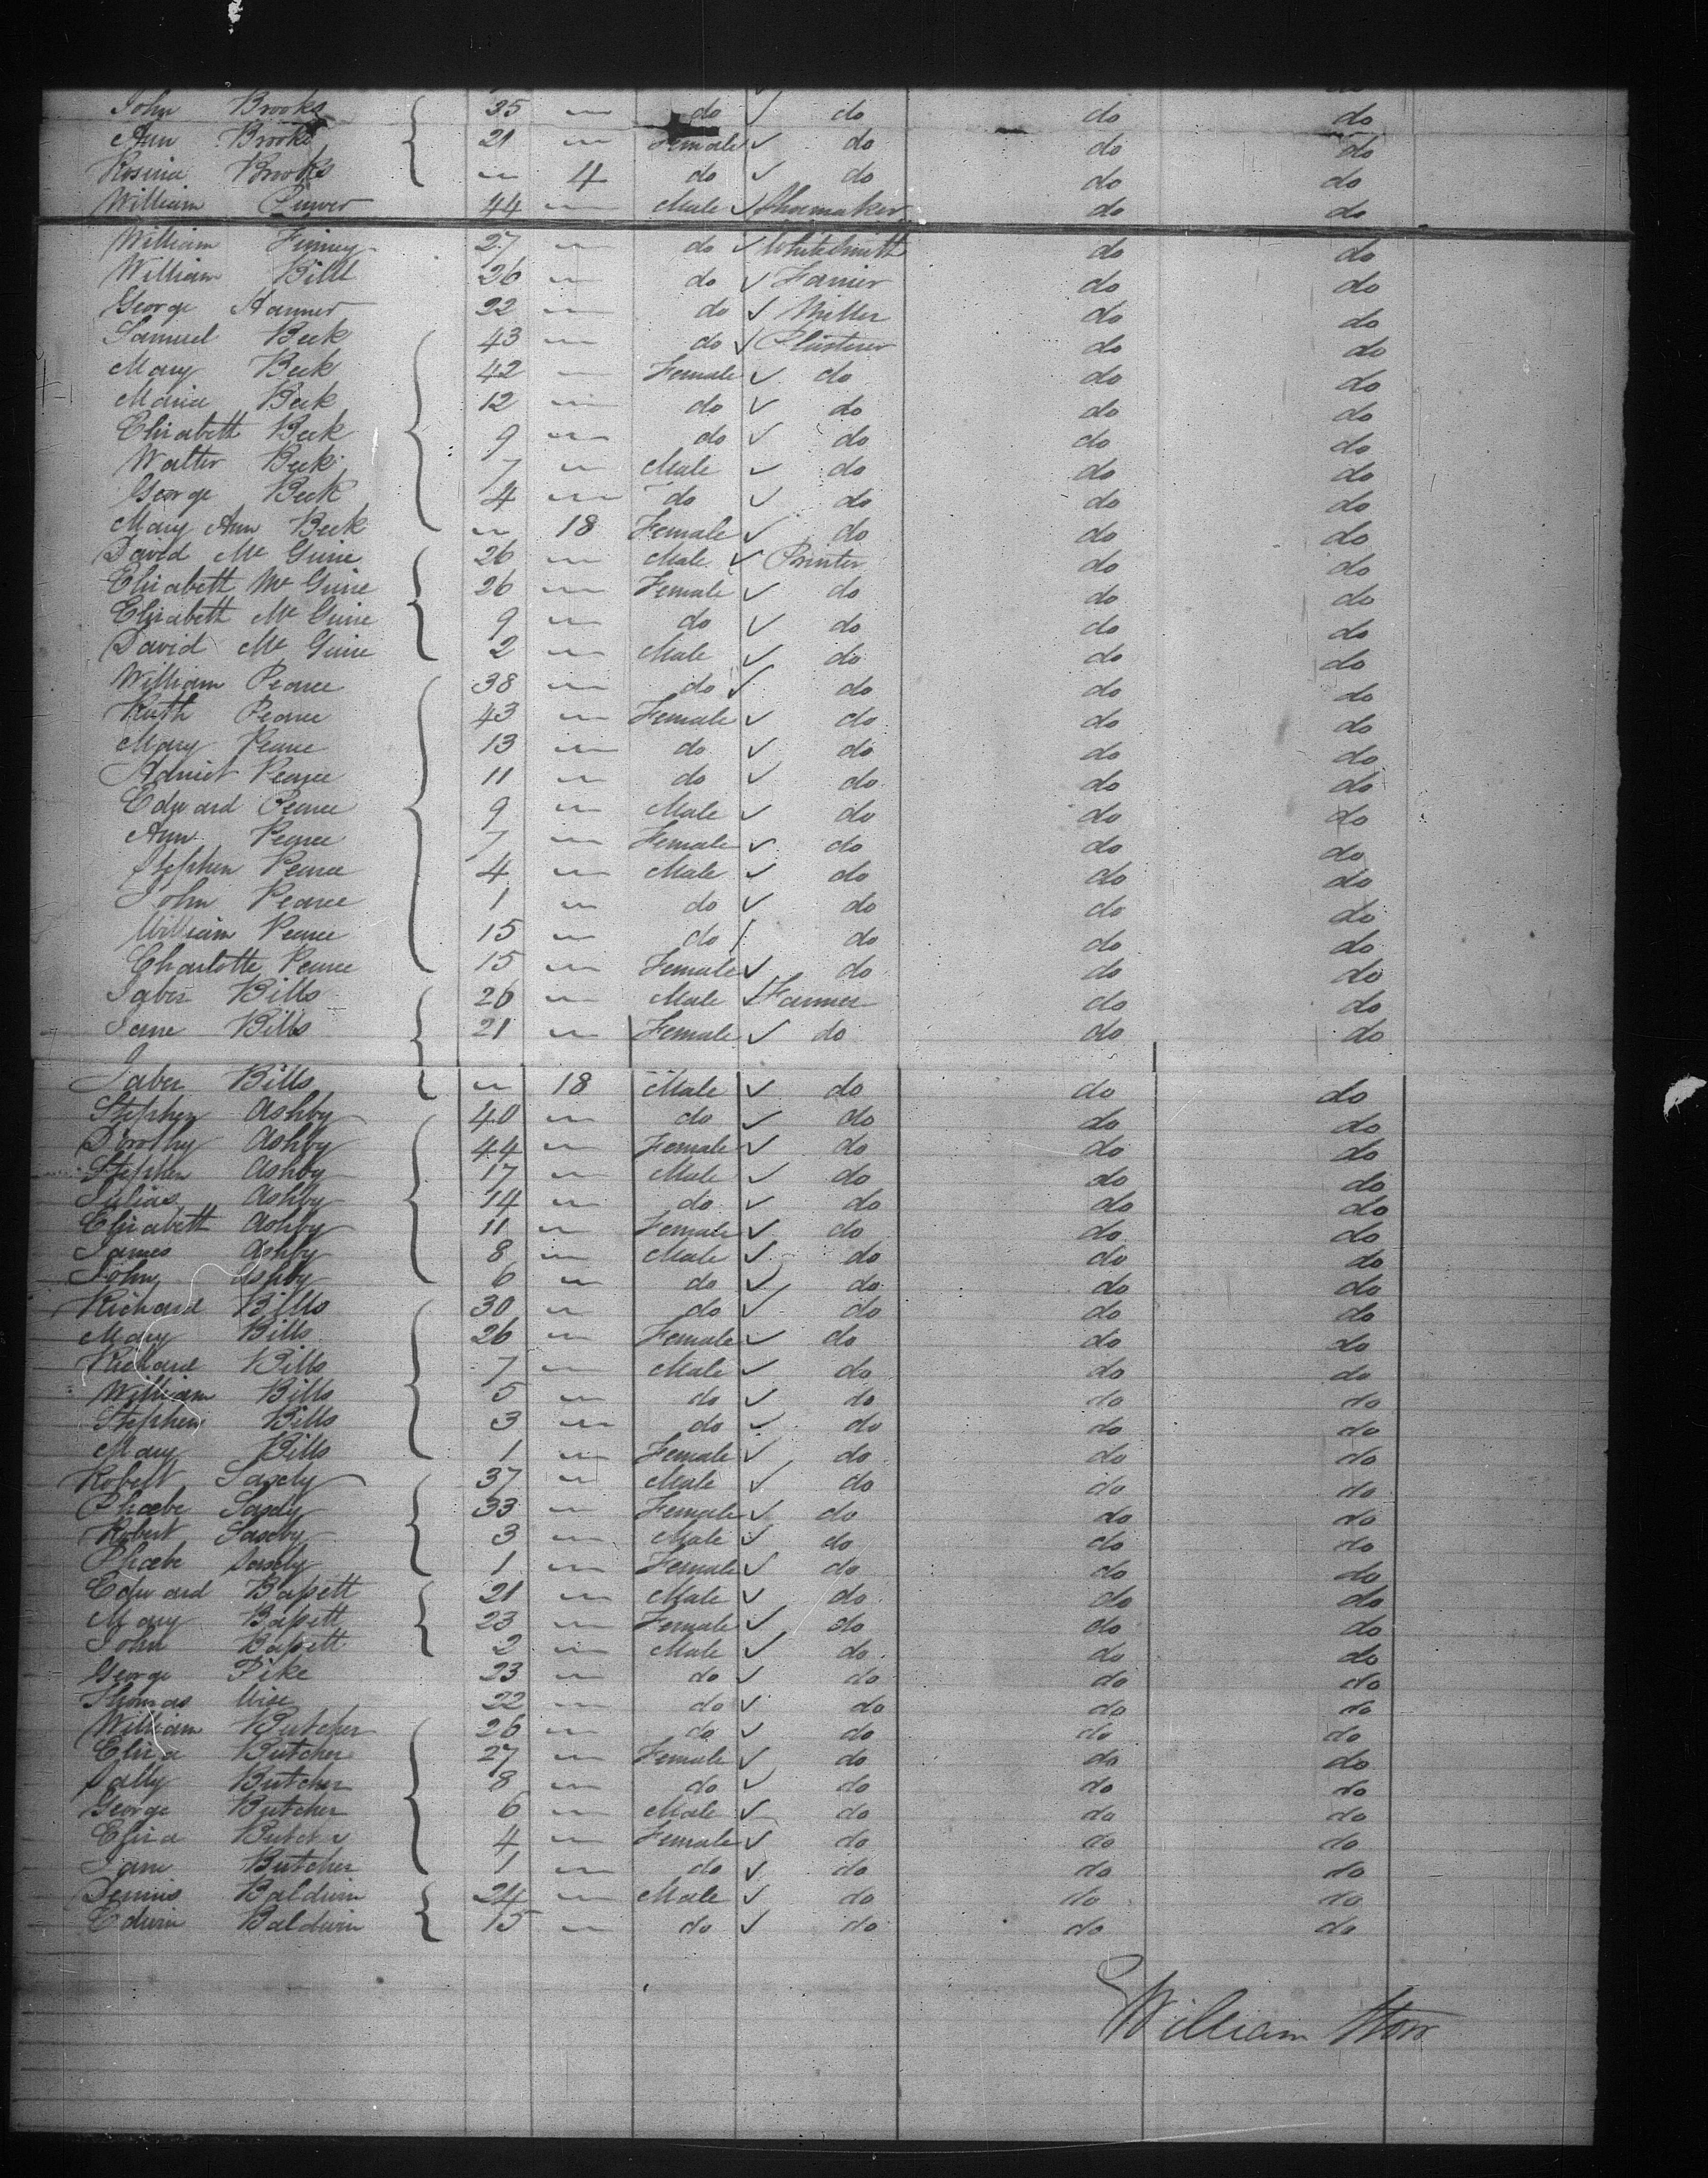 John Brooks 25 do do do do
Ann Brooks 21 Female do do do
Rosina Brooks 4 do do do do
William 44 Male Shoemaker do do
William Finney 27 do Whitesmith do do
William Bill 26 do do do
George Hanner 22 do Miller do do
Samuel Beek 43 do do do
Mary Beek 42 Female do do do
Maria Beek 12 do do do do
Elizabeth Beek 9 do do do do
Walter Beek 7 Male do do do
George Beek 4 do do do do
Mary Ann Beek 18 Female do do do
David Mc Guire 26 Male Printer do do
Elizabeth Mc Guire 26 Female do do do
Elizabeth Mc Guire 9 do do do do
David Mc Guire 2 Male do do do
William Pearce 38 do do do do
Ruth Pearce 43 Female do do do
Mary Pearce 13 do do do do
Pearce 11 do do do do
Edward Pearce 9 Male do do do
Ann Pearce 7 Female do do do
Stephen Pearce 4 Male do do do
John Pearce 1 do do do do
William Pearce 15 do do do do
Charlotte Pearce 15 Female do do do
Jabez Bills 26 Male Farmer do do
Jane Bills 21 Female do do do
Jabez Bills 18 Male do do do
Stephen Ashby 40 do do do do
Dorothy Ashby 44 Female do do do
Stephen Ashby 17 Male do do do
Julias Ashby 14 do do do do
Elizabeth Ashby 11 Female do do do
James Ashby 8 Male do do do
John Ashby 6 do do do do
Richard Bills 30 do do do do
Mary Bills 26 Female do do do
Richard Bills 7 Male do do do
William Bills 5 do do do do
Stephen Bills 3 do do do do
Mary Bills 1 Female do do do
Robert 37 Male do do do
Phoebe 33 Female do do do
Robert 3 Male do do do
Phoebe 1 Female do do do
Edward Bassett 21 Male do do do
Mary Bassett 23 Female do do do
John Bassett 2 Male do do do
George Pike 23 do do do do
Thomas Wise 22 do do do do
William Butcher 26 do do do do
Eliza Butcher 27 Female do do do
Sally Butcher 8 do do do do
George Butcher 6 Male do do do
Eliza Butcher 4 Female do do do
Jane Butcher 1 do do do do
Dennis Baldwin 24 Male do do do
Edwin Baldwin 15 do do do do
William Storr